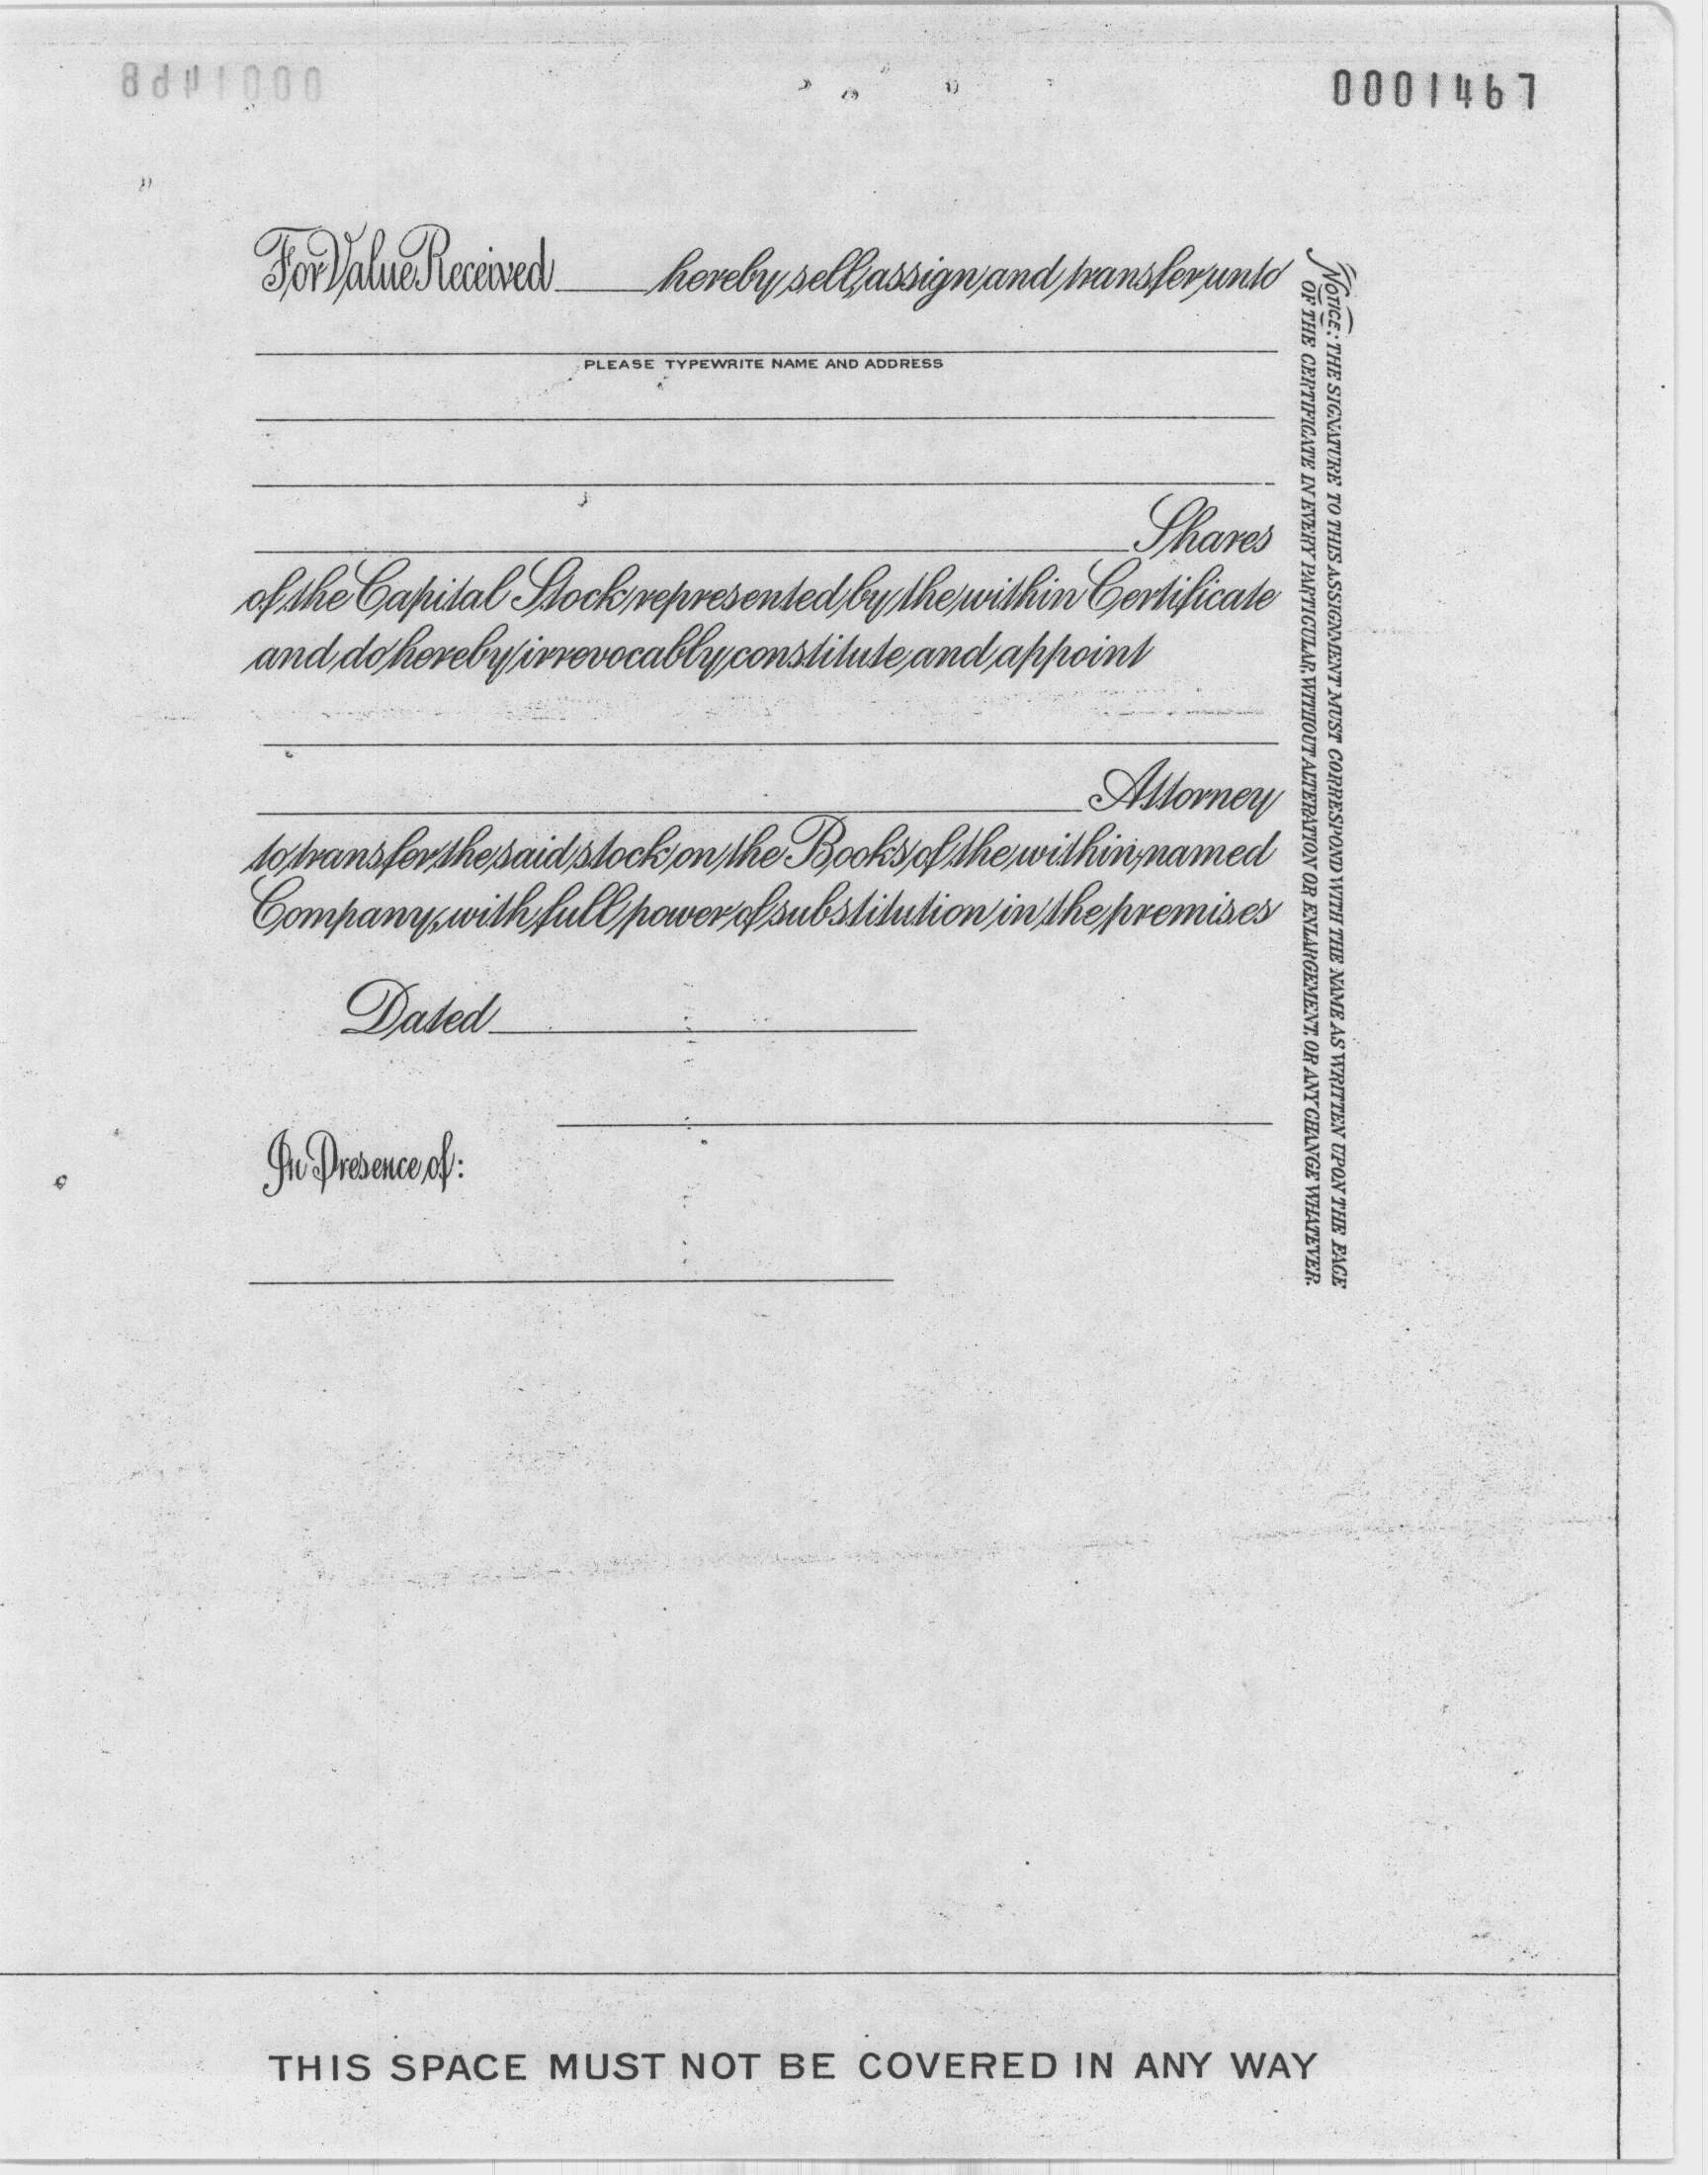 0001467
For Value Received hereby sell, assign and transfer unto
PLEASE TYPEWRITE NAME AND ADDRESS
Shares
of the Capital Stock represented by the within Certificate
and do hereby irrevocably constitute and appoint
Attorney
to transfer the said stock on the Books of the within named
Company, with full power of substitution in the premises
Dated
In Presence of:
NOTICE: THE SIGNATURE TO THIS ASSIGNMENT MUST CORRESPOND WITH THE NAME AS WRITTEN UPON THE FACE
OF THE CERTIFICATE IN EVERY PARTICULAR, WITHOUT ALTERATION OR ENLARGEMENT, OR ANY CHANGE WHATEVER.
THIS SPACE MUST NOT BE COVERED IN ANY WAY